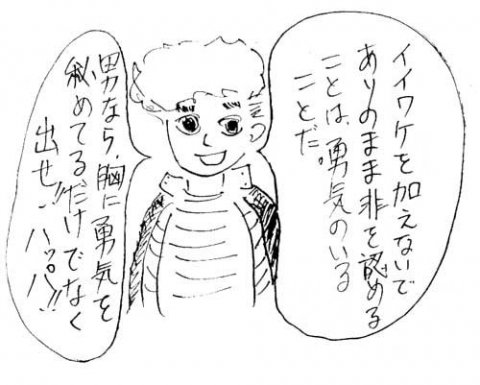 イイワケを加えないで
ありのまま非を認める
ことは、勇気のいる
ことだ。
男なら、胸に勇気を
秘めてるだけでなく
出せ!!ハッパ!!